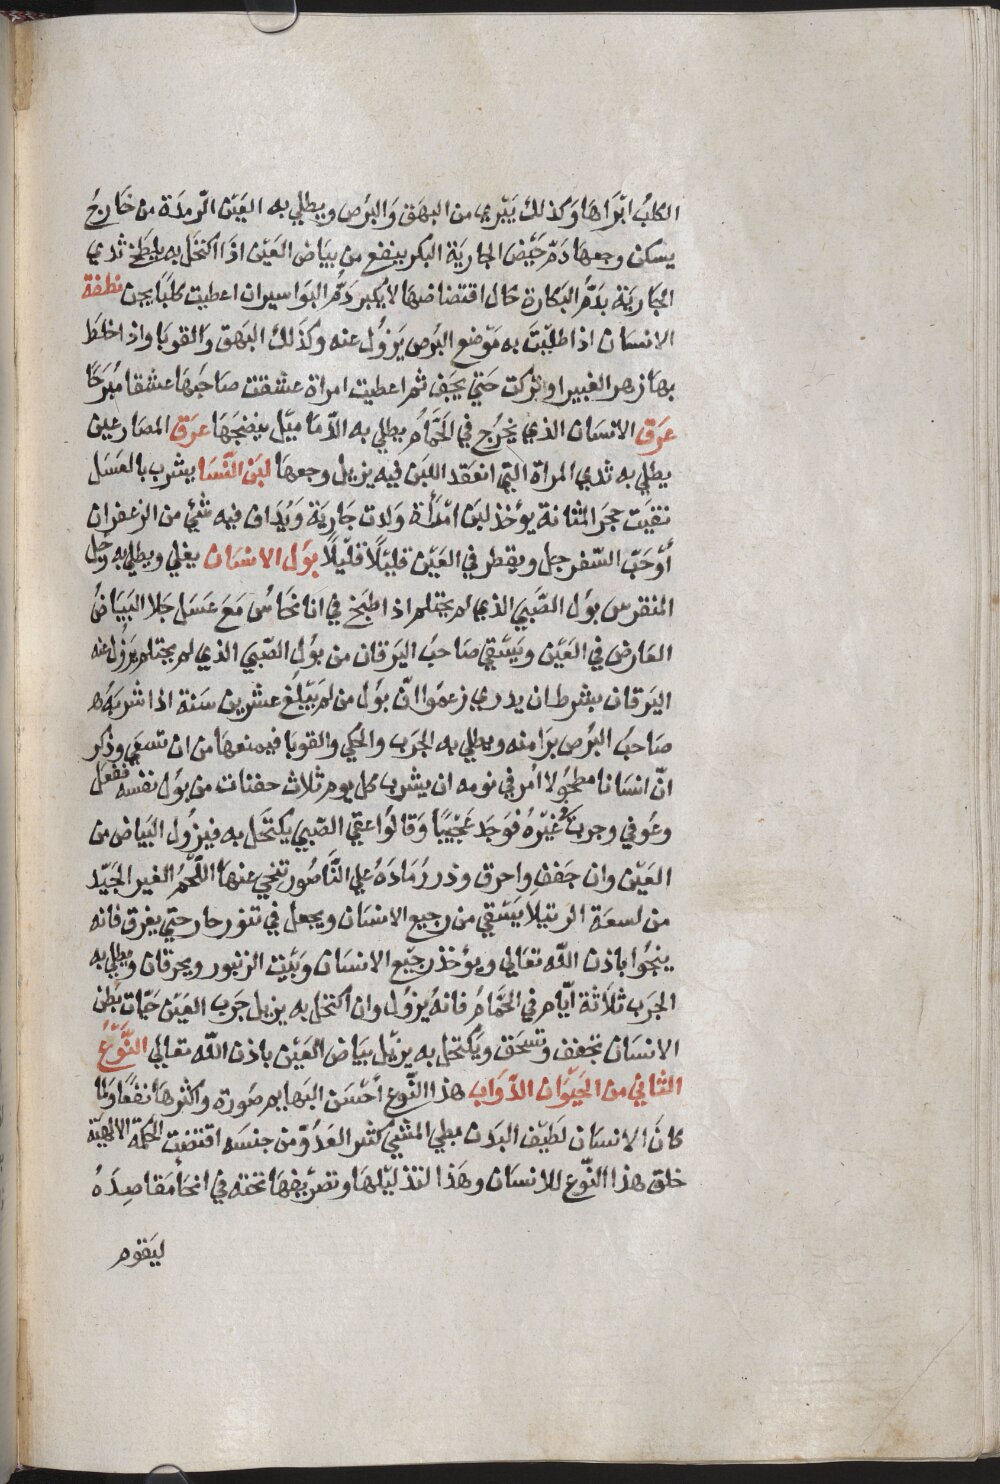 الكلب ابرَاهَا وَكذلك يَبْري من البهق وَالبرَص ويطلي به العَيْن الرّمدَة من خَارج
يسكن وجعهَا دَمّ حَيْض الجاريَة البكر ينفع من بيَاض العَيْن اذَا اكتحَل به يلطخ ثدي
الجَاريَة بدَمّ البَكارة حَال اقتضاضهَا لا يكبر دَمُ البوَاسيران اعطيت كلبًا يجن نطفة
الانسَان اذا طليْتَ به مَوْضع البَرص يَزوُل عنه وكذَلك البَهق وَالقوبَا واذ اخلط
بهَا زهر الغبيرا وتركت حَتي يجَف ثم اعطيت امراة عشقت صاحبَهَا عشقا مُبَرحًا
عرَق الانسَان الذي يخرُج في الحَمَّام يطلي به الدّمَاميّل ينضجهَا عرَق المصَارعين
يطلي به ثدي المراة التي انعَقد اللبَن فيه يزيل وجعهَا لبَن النّسَا يشرب بالعَسَل
نفيَت حجر المثَانة يؤخذ لبَن امْرَأة وَلدت جَاريَة وَيُدَاف فيه شَيْ من الزعفران
أوْحَبّ السّفرجل ويقطر في العَيْن قليْلًا قليْلًا بوَل الانسَان يغلي ويطلي به رجل
المنقرس بوَل الصَّبي الذي لم يحتلم اذ اطبخ في انا نحَاس مَعَ عَسَل جَلا البيَاضُ
العَارض في العَيْن ويَسْقي صَاحبُ اليَرقان من بوْل الصّبي الذي لم يحتلم يزُول عنه
اليَرقان بشرط ان يدري زعموُا انّ بوَل من لم يَبْلغ عشرين سَنة اذا شربَهُ
صَاحبُ البرَص برَا منه ويطلي به الجرَب والحكي والقوبا فيمنعهَا من ان تسعَي وذكر
انّ انسَانا مطحُولا امُر في نومه ان يشرب كل يوم ثلاث حفنات من بوَل نفسه ففعَل
وعُوفي وجربَهُ غيْرهُ فوَجَد عجَيْبًا وَقالوُا عقي الصّبي يكتحَل به فيزوُل البيَاض من
العَيْن وان جَفف واحرق وذر رُمَادَهُ علي النّاصُور تنحي عنهَا اللّحْمُ الغير الجيّد
من لسعَة الرتيلا يَسْقي من رجيع الانسَان ويجعل في تنور حار حتي يغرق فانه
ينجُوا باذن اللّه تعَالي ويؤخذ رجيْع الانسَان وَبيْت الزنبور ويحرقان ويطلي به
الجرَب ثلَاثة ايّام في الحَمَّام فانهُ يزوُل وان اكتحل به يزيل جرَب العَيَن حَيّات بُطن
الانسَان تجفف وتسحَق ويكتحل به يزيْل بيَاض العَيْن باذن اللّه تعَالي النّوَعُ
الثاني من الحَيْوَان الدَّوَاب هذا النّوع أحْسَن البَهايم صوَرة واكثرهَا نفعًا وَلمَا
كانَ الانسَان لطيْف البدَن بطي المشْي كثير العَدُوّ من جنسَه اقتضَت الحكمَة الالهَيّة
خلق هذا النّوع للانسَان وهَذا لتذليْلهَا وتصرّيفهَا تحته في انحَا مَقاصِدَهُ
ليَقوم